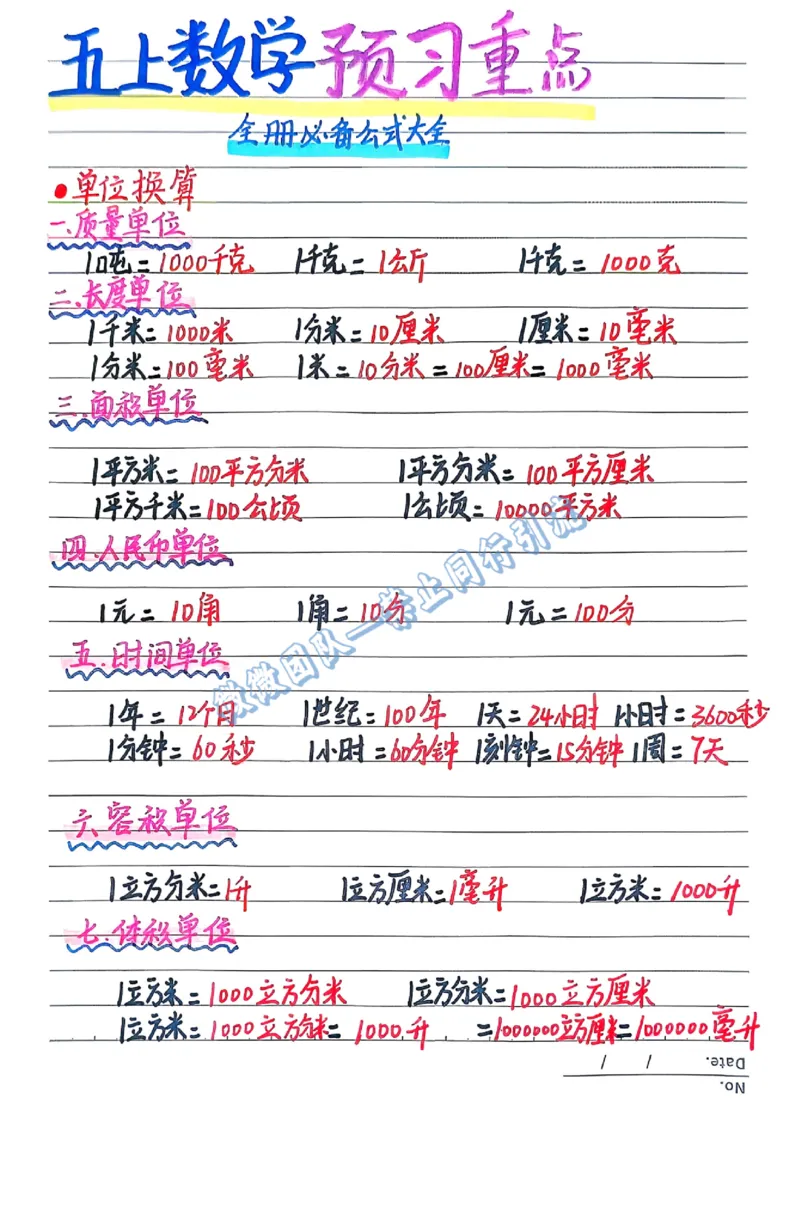 五上数学预习重点
全册必备公式大全
●单位换算
一.质量单位
1吨=1000千克 1千克=1公斤 1千克=1000克
二.长度单位
1千米=1000米 1分米=10厘米 1厘米=10毫米
1分米=100毫米 1米=10分米=100厘米=1000毫米
三.面积单位
1平方米=100平方分米 1平方分米=100平方厘米
1平方千米=100公顷 1公顷=10000平方米
四.人民币单位
1元=10角 1角=10分 1元=100分
五.时间单位
1年=12个月 1世纪=100年 1天=24小时 1小时=3600秒
1分钟=60秒 1小时=60分钟 1刻钟=15分钟 1周=7天
六.容积单位
1立方分米=1升 1立方厘米=1毫升 1立方米=1000升
七.体积单位
1立方米=1000立方分米 1立方分米=1000立方厘米
1立方米=1000立方分米=1000升 =1000000立方厘米=1000000毫升
Date. / /
No.
微微团队—禁止同行引流